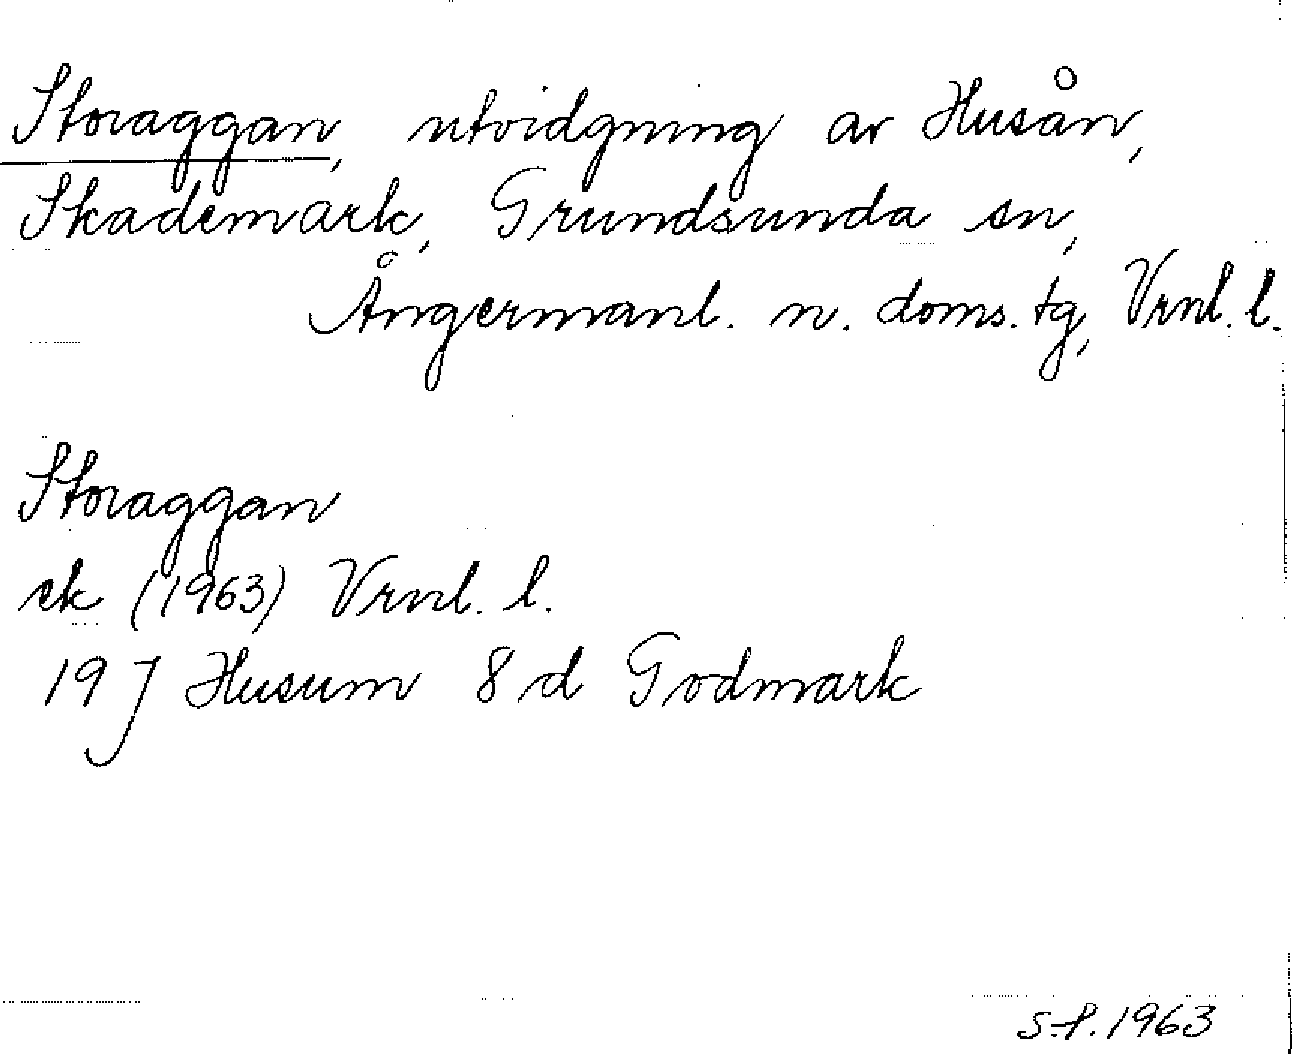 Storaggan, utvidgning av Husån,
Skademark, Grundsunda sn,
Ångermanl. n. doms. tg, Vrnl. l.
Storaggan
ek (1963) Vrnl. l.
19 J Husum 8 d Godmark
1963